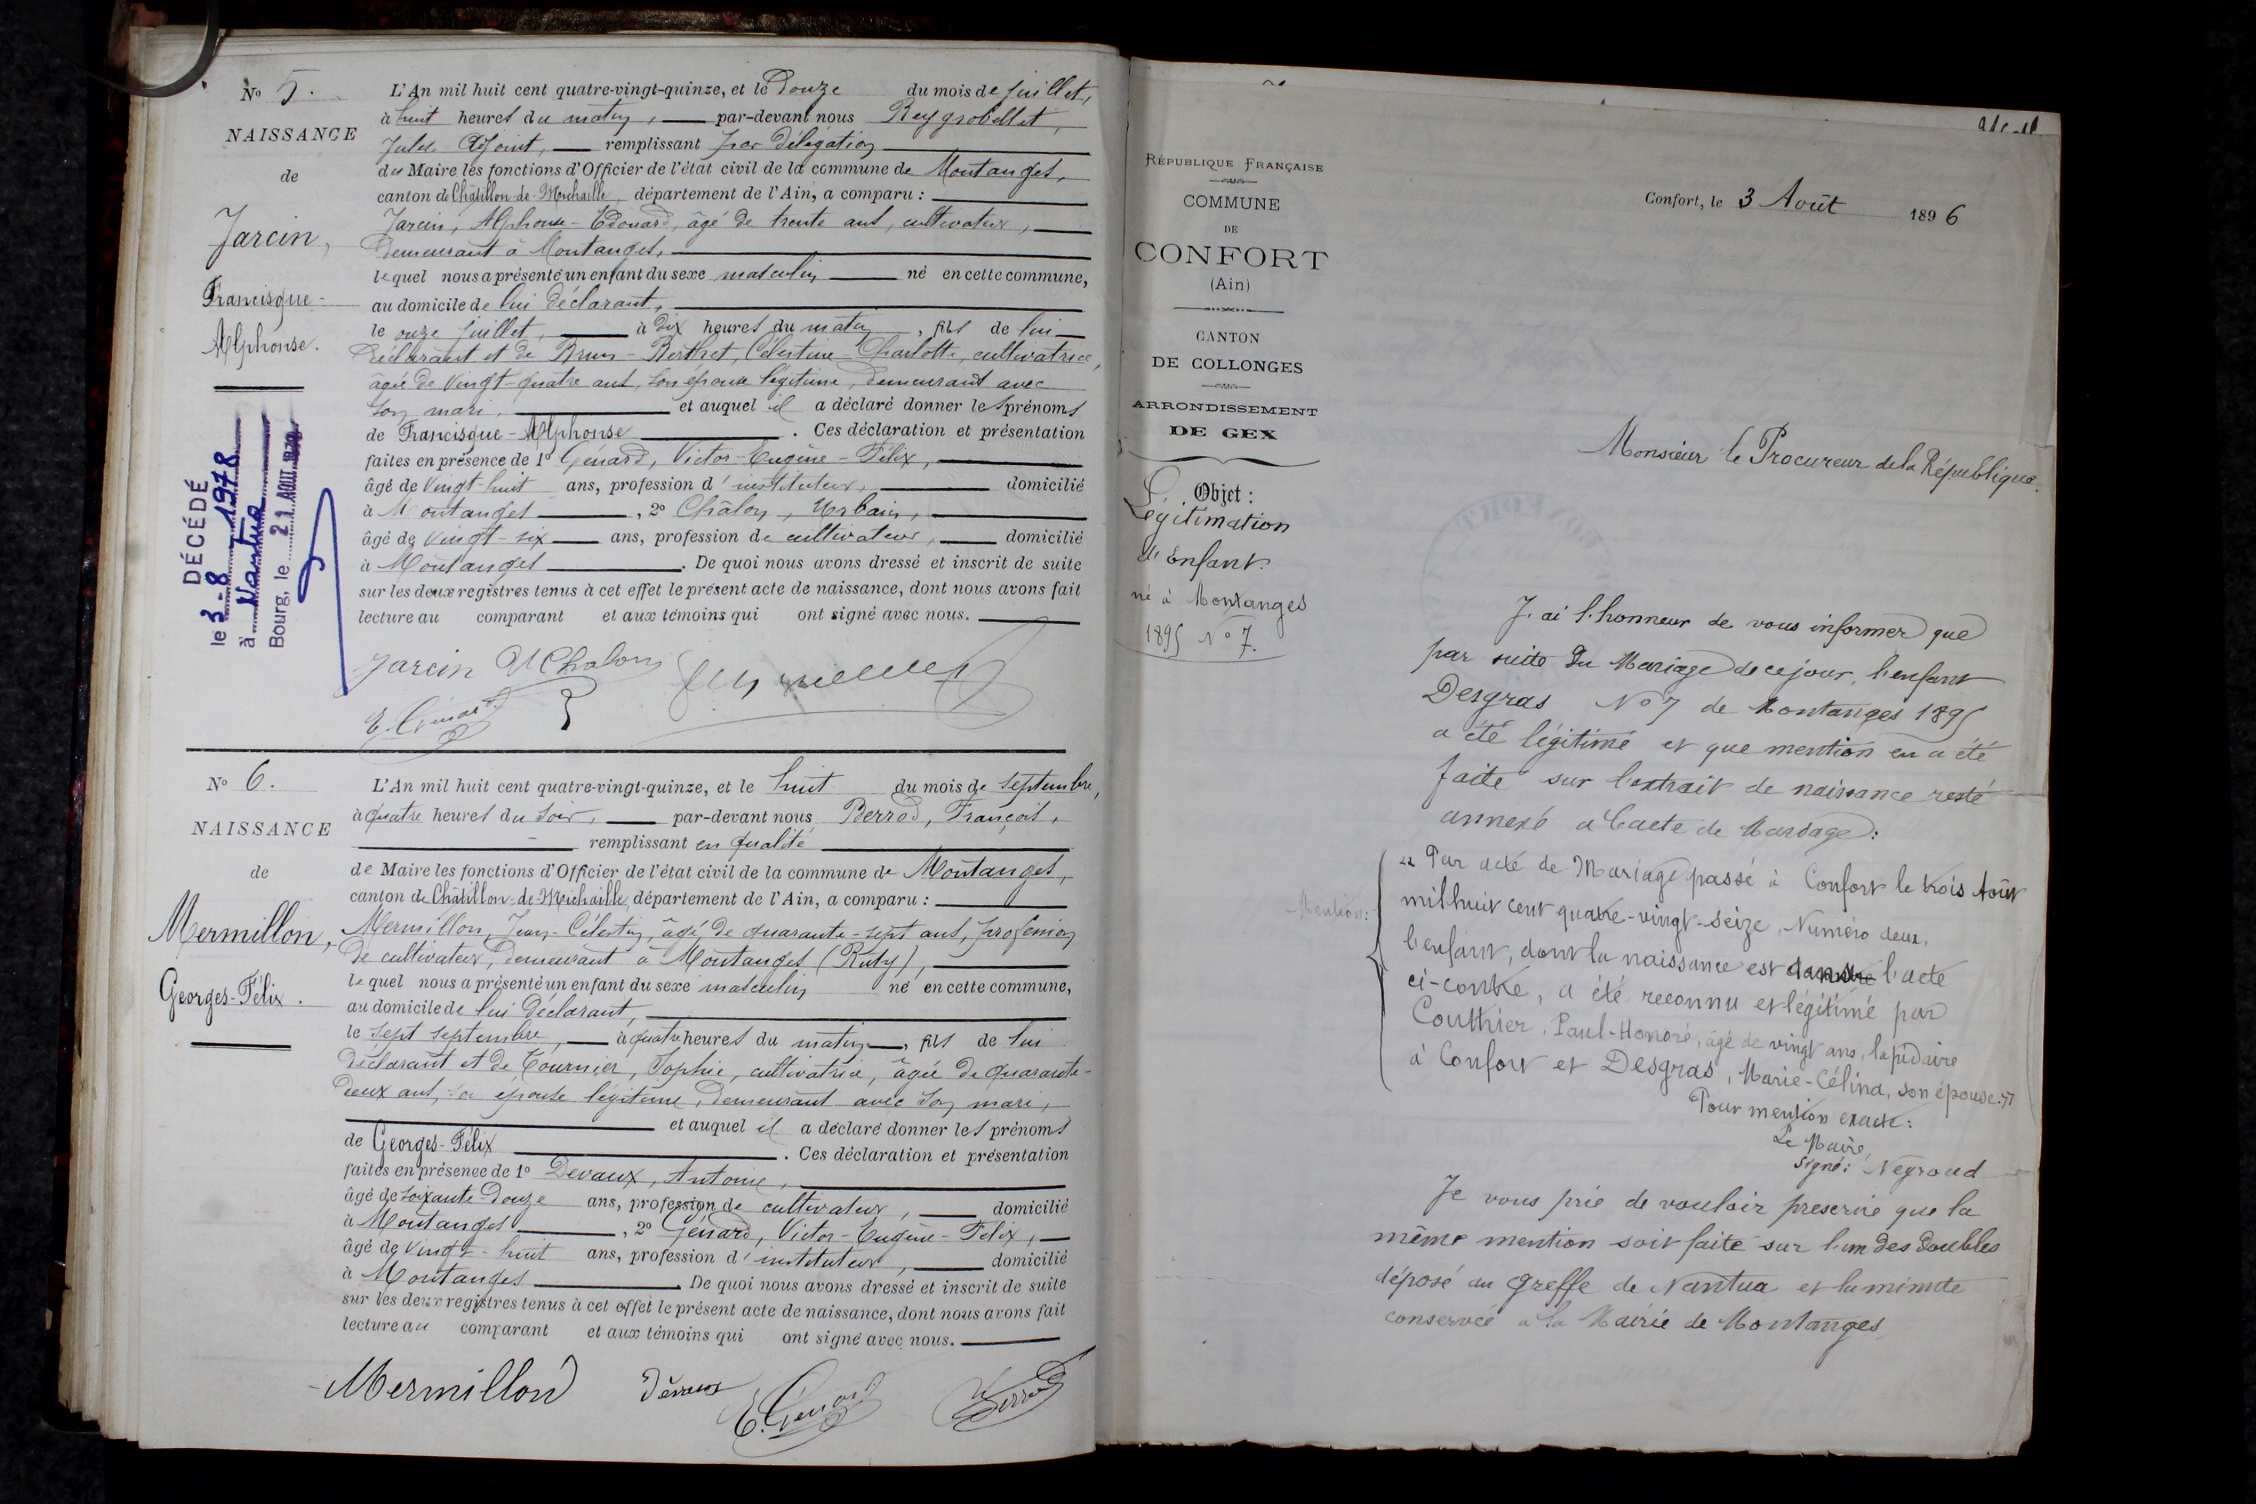 No 5.
NAISSANCE
de
Jarcin,
Francisque-
Alphonse.
DÉCÉDÉ
le 3-8-1978
à Nantua
Bourg, le 21 AOUT 1978
L'An mil huit cent quatre-vingt-quinze, et le Douze du mois de juillet,
à huit heures du matin, par-devant nous Reygrobellet,
Jules Adjoint, remplissant par délégation
du Maire les fonctions d'Officier de l'état civil de la commune de Montanges,
canton de Châtillon-de-Michaille, département de l'Ain, a comparu :
Jarcin, Alphonse-Edouard, âgé de trente ans, cultivateur,
demeurant à Montanges,
lequel nous a présenté un enfant du sexe masculin né en cette commune,
au domicile de lui déclarant,
le onze juillet, à dix heures du matin, fils de lui
déclarant et de Brun-Berthet, Célestine-Charlotte, cultivatrice,
âgée de vingt-quatre ans, son épouse légitime, demeurant avec
son mari, et auquel il a déclaré donner les prénoms
de Francisque-Alphonse. Ces déclaration et présentation
faites en présence de 1o Génard, Victor-Eugène-Félix,
âgé de vingt huit ans, profession d'instituteur, domicilié
à Montanges, 2o Châlon, Urbain,
âgé de vingt-six ans, profession de cultivateur, domicilié
à Montanges. De quoi nous avons dressé et inscrit de suite
sur les deux registres tenus à cet effet le présent acte de naissance, dont nous avons fait
lecture au comparant et aux témoins qui ont signé avec nous.
Jarcin U Chalon
E. Génard
No 6.
NAISSANCE
de
Mermillon,
Georges-Félix.
L'An mil huit cent quatre-vingt-quinze, et le huit du mois de septembre,
à quatre heures du soir, par-devant nous Berrod, François,
remplissant en qualité
de Maire les fonctions d'Officier de l'état civil de la commune de Montanges,
canton de Châtillon-de-Michaille, département de l'Ain, a comparu :
Mermillon, Jean-Célestin, âgé de quarante-sept ans, profession
de cultivateur, demeurant à Montanges (Ruty),
lequel nous a présenté un enfant du sexe masculin né en cette commune,
au domicile de lui déclarant,
le sept septembre, à quatre heures du matin, fils de lui
déclarant et de Tournier, Sophie, cultivatrice, âgée de quarante-
deux ans, sa épouse légitime, demeurant avec son mari,
et auquel il a déclaré donner les prénoms
de Georges-Félix. Ces déclaration et présentation
faites en présence de 1o Devaux, Antoine,
âgé de soixante-douze ans, profession de cultivateur, domicilié
à Montanges, 2o Génard, Victor-Eugène-Félix,
âgé de vingt-huit ans, profession d'instituteur, domicilié
à Montanges. De quoi nous avons dressé et inscrit de suite
sur les deux registres tenus à cet effet le présent acte de naissance, dont nous avons fait
lecture au comparant et aux témoins qui ont signé avec nous.
Mermillon Devaux E. Génard Berrod
RÉPUBLIQUE FRANÇAISE
COMMUNE
DE
CONFORT
(Ain)
CANTON
DE COLLONGES
ARRONDISSEMENT
DE GEX
Objet :
Légitimation
d'Enfant.
né à Montanges
1895 No 7.
Confort, le 3 Août 1896
Monsieur le Procureur de la République.
J'ai l'honneur de vous informer que
par suite du Mariage de ce jour, l'enfant
Desgras No 7 de Montanges 1895
a été légitimé et que mention en a été
faite sur l'extrait de naissance resté
annexé à l'acte de Mariage :
Mention :
"Par acte de Mariage passé à Confort le trois Août
mil huit cent quatre-vingt-seize, Numéro deux,
l'enfant, dont la naissance est l'acte
ci-contre, a été reconnu et légitimé par
Couthier, Paul-Honoré, âgé de vingt ans, lapidaire
à Confort et Desgras, Marie-Célina, son épouse."
Pour mention exacte :
Le Maire,
signé : Négroud
Je vous prie de vouloir prescrire que la
même mention soit faite sur l'un des doubles
déposé au greffe de Nantua et la minute
conservée à la Mairie de Montanges